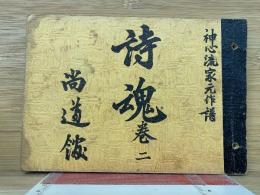 神心流家元作譜
詩魂
巻二
尚道館